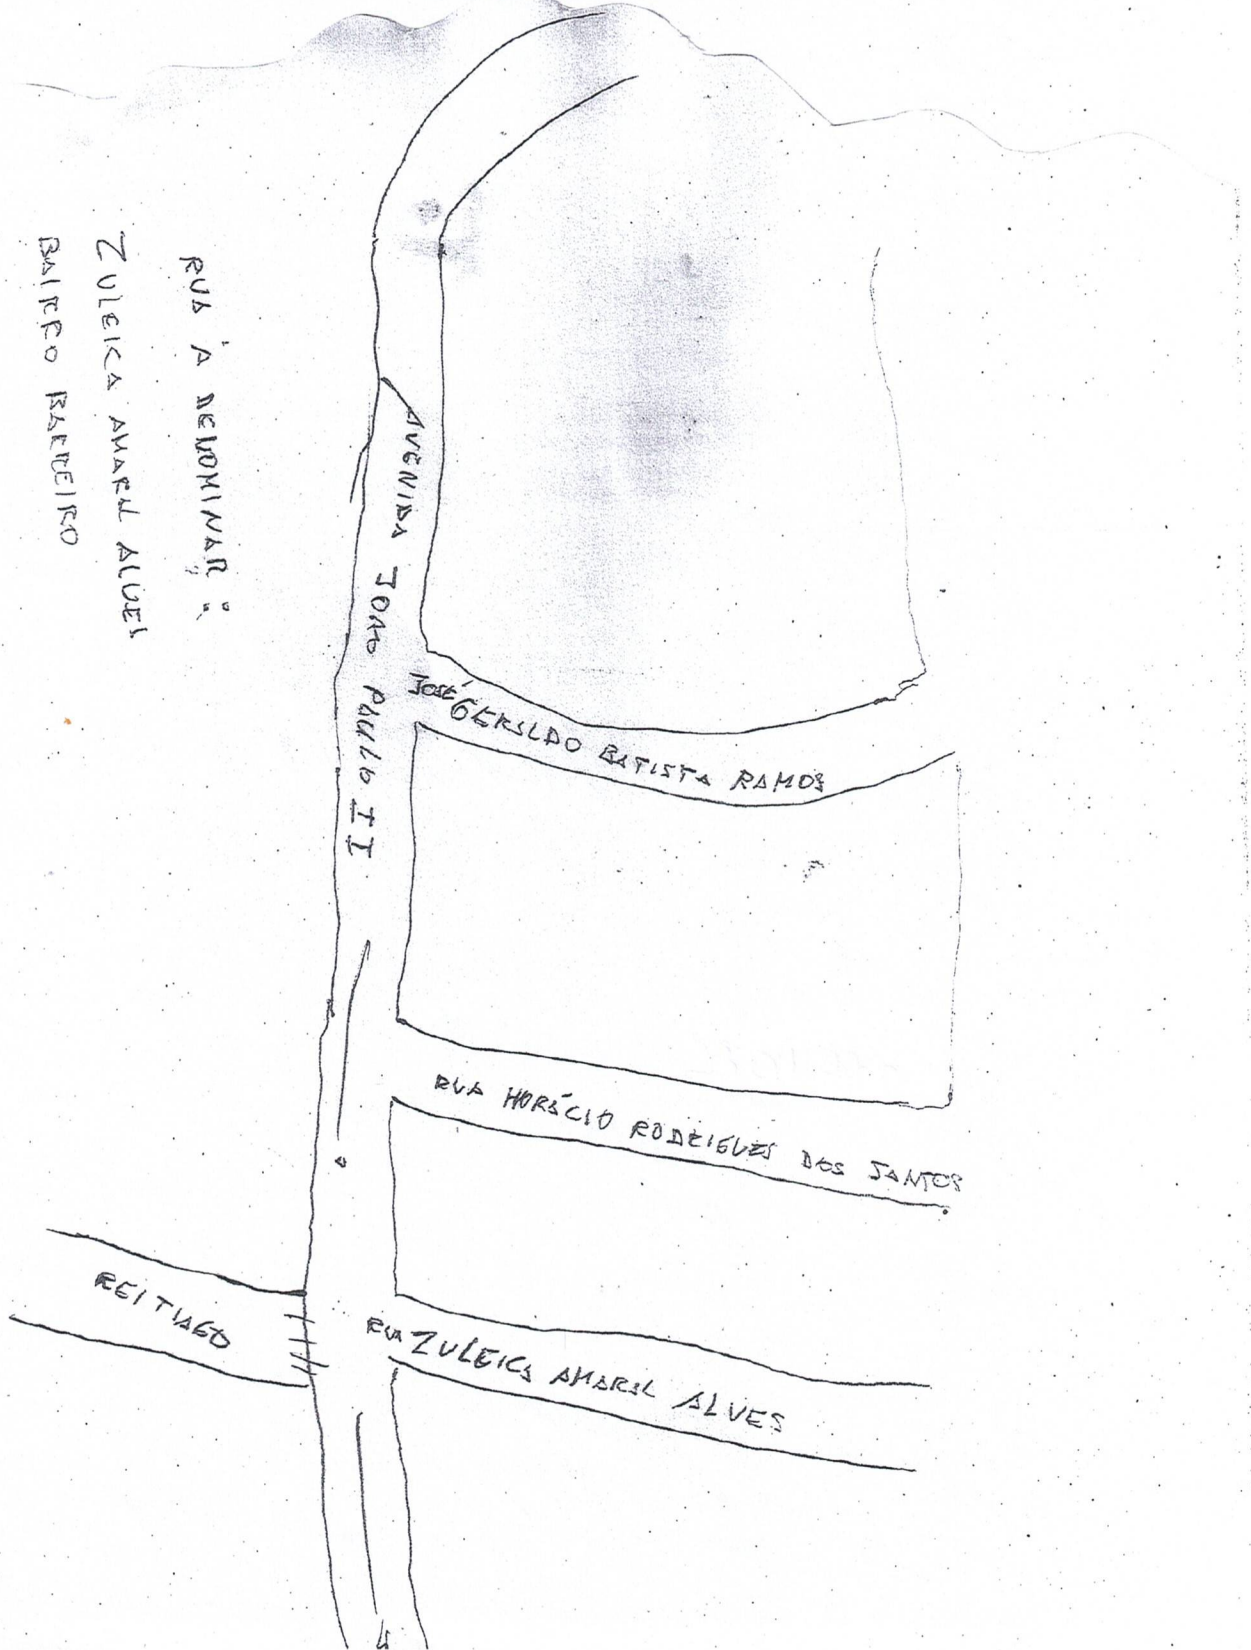 RUA À DENOMINAR:
ZULEICA AMARAL ALVES
BAIRRO BARREIRO
AVENIDA JOAO PAULO II
JOSÉ GERALDO BATISTA RAMOS
RUA HORÁCIO RODRIGUES DOS SANTOS
REI TIAGO
RUA ZULEICA AMARAL ALVES